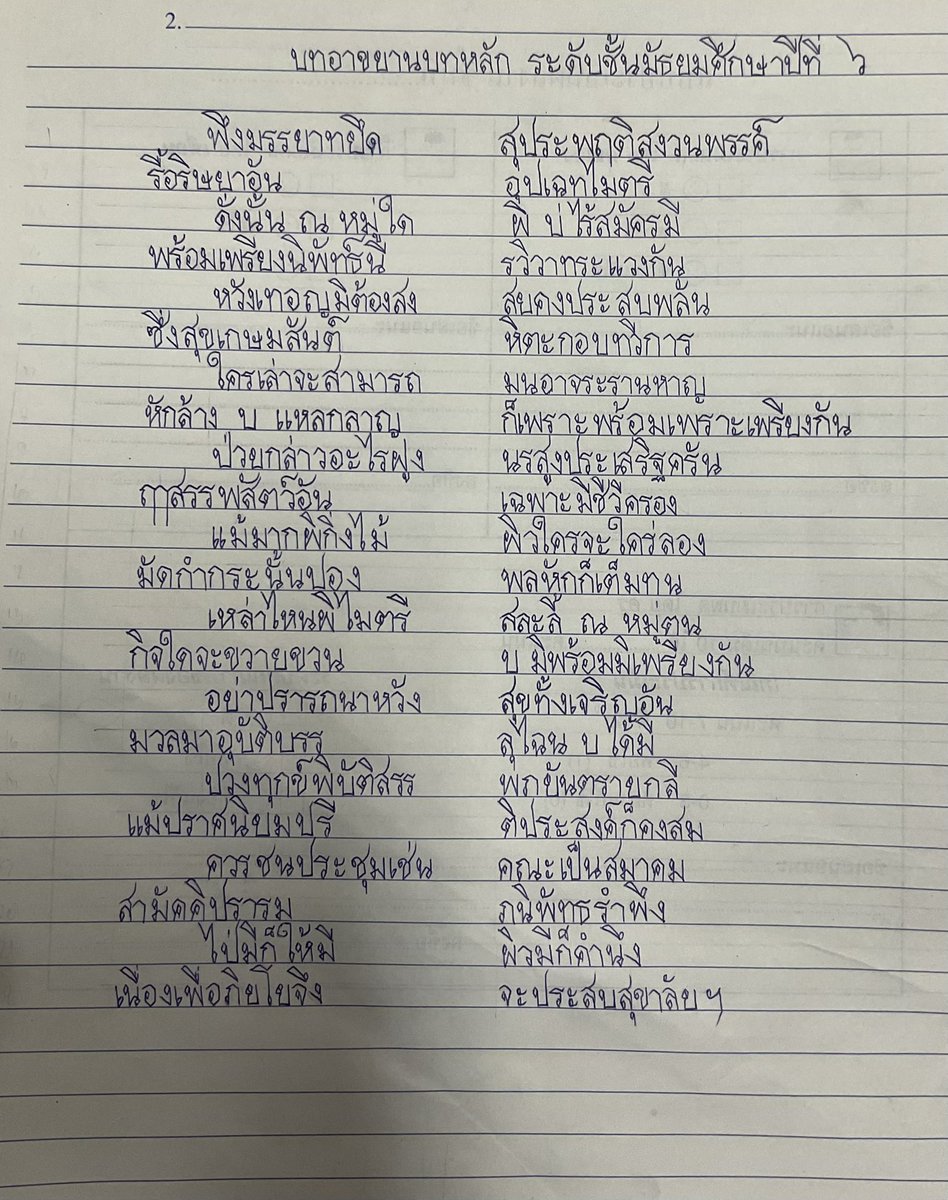 2.
บทอาขยานบทหลัก ระดับชั้นมัธยมศึกษาปีที่ ๖
พึงมรรยาทยึด สุประพฤติสงวนพรรค์
รื้อริษยาอัน อุปเฉทไมตรี
ดั่งนั้น ณ หมู่ใด ผิ บ่ ไร้สมัครมี
พร้อมเพรียงนิพัทธ์นี รวิวาทระแวงกัน
หวังเทอญมิต้องสง สยคงประสบพลัน
ซึ่งสุขเกษมสันต์ หิตะกอบทวิการ
ใครเล่าจะสามารถ มนอาจระรานหาญ
หักล้าง บ แหลกลาญ ก็เพราะพร้อมเพราะเพรียงกัน
ป่วยกล่าวอะไรฝูง นรสูงประเสริฐครัน
ฤาสรรพสัตว์อัน เฉพาะมีชีวีครอง
แม้มากผิกิ่งไม้ ผิวใครจะใคร่ลอง
มัดกำกระนั้นปอง พลหักก็เต็มทน
เหล่าไหนผิไมตรี สละลี้ ณ หมู่ตน
กิจใดจะขวายขวน บ มิพร้อมมิเพรียงกัน
อย่าปรารถนาหวัง สุขทั้งเจริญอัน
มวลมาอุบัติบรร ลุไฉน บ ได้มี
ปวงทุกข์พิบัติสรร พภยันตรายกลี
แม้ปราศนิยมปรี ติประสงค์ก็คงสม
ควรชนประชุมเช่น คณะเป็นสมาคม
สามัคคิปรารม ภนิพัทธรำพึง
ไป่มีก็ให้มี ผิวมีก็คำนึง
เนื่องเพื่อภิยโยจึง จะประสบสุขาลัยฯ